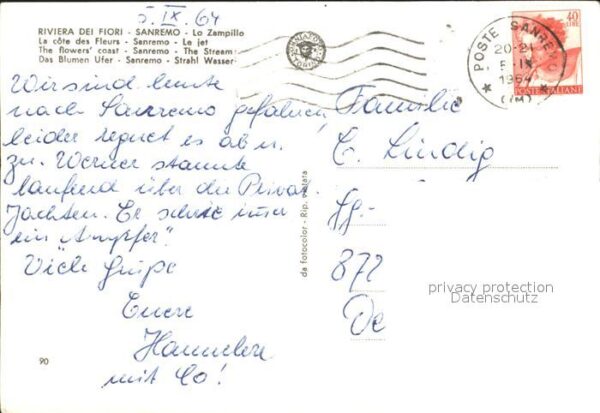 5. IX. 64
RIVIERA DEI FIORI - SANREMO - Lo Zampillo
La côte des Fleurs - Senremo - Le jet
The flowers' coast - Sanremo - The Streem
Das Blumen Ufer - Sanremo - Strahl Wasser
40 LIRE
POSTE SANREMO
20-21
5-IX
1964
(IM)
POSTE ITALIANE
Wir sind heute
nach Sanremo gefahren,
leider regnet es ab u.
zu. Werner staunte
laufend über die Privat
Jachten. Er schrie immer
ein "Ampfer".
Viele Grüße
Eure
Hannelore
mit Co!
Familie
E. Lindig
872
De
da fotocolor - Rip. vietata
privacy protection
Datenschutz
90